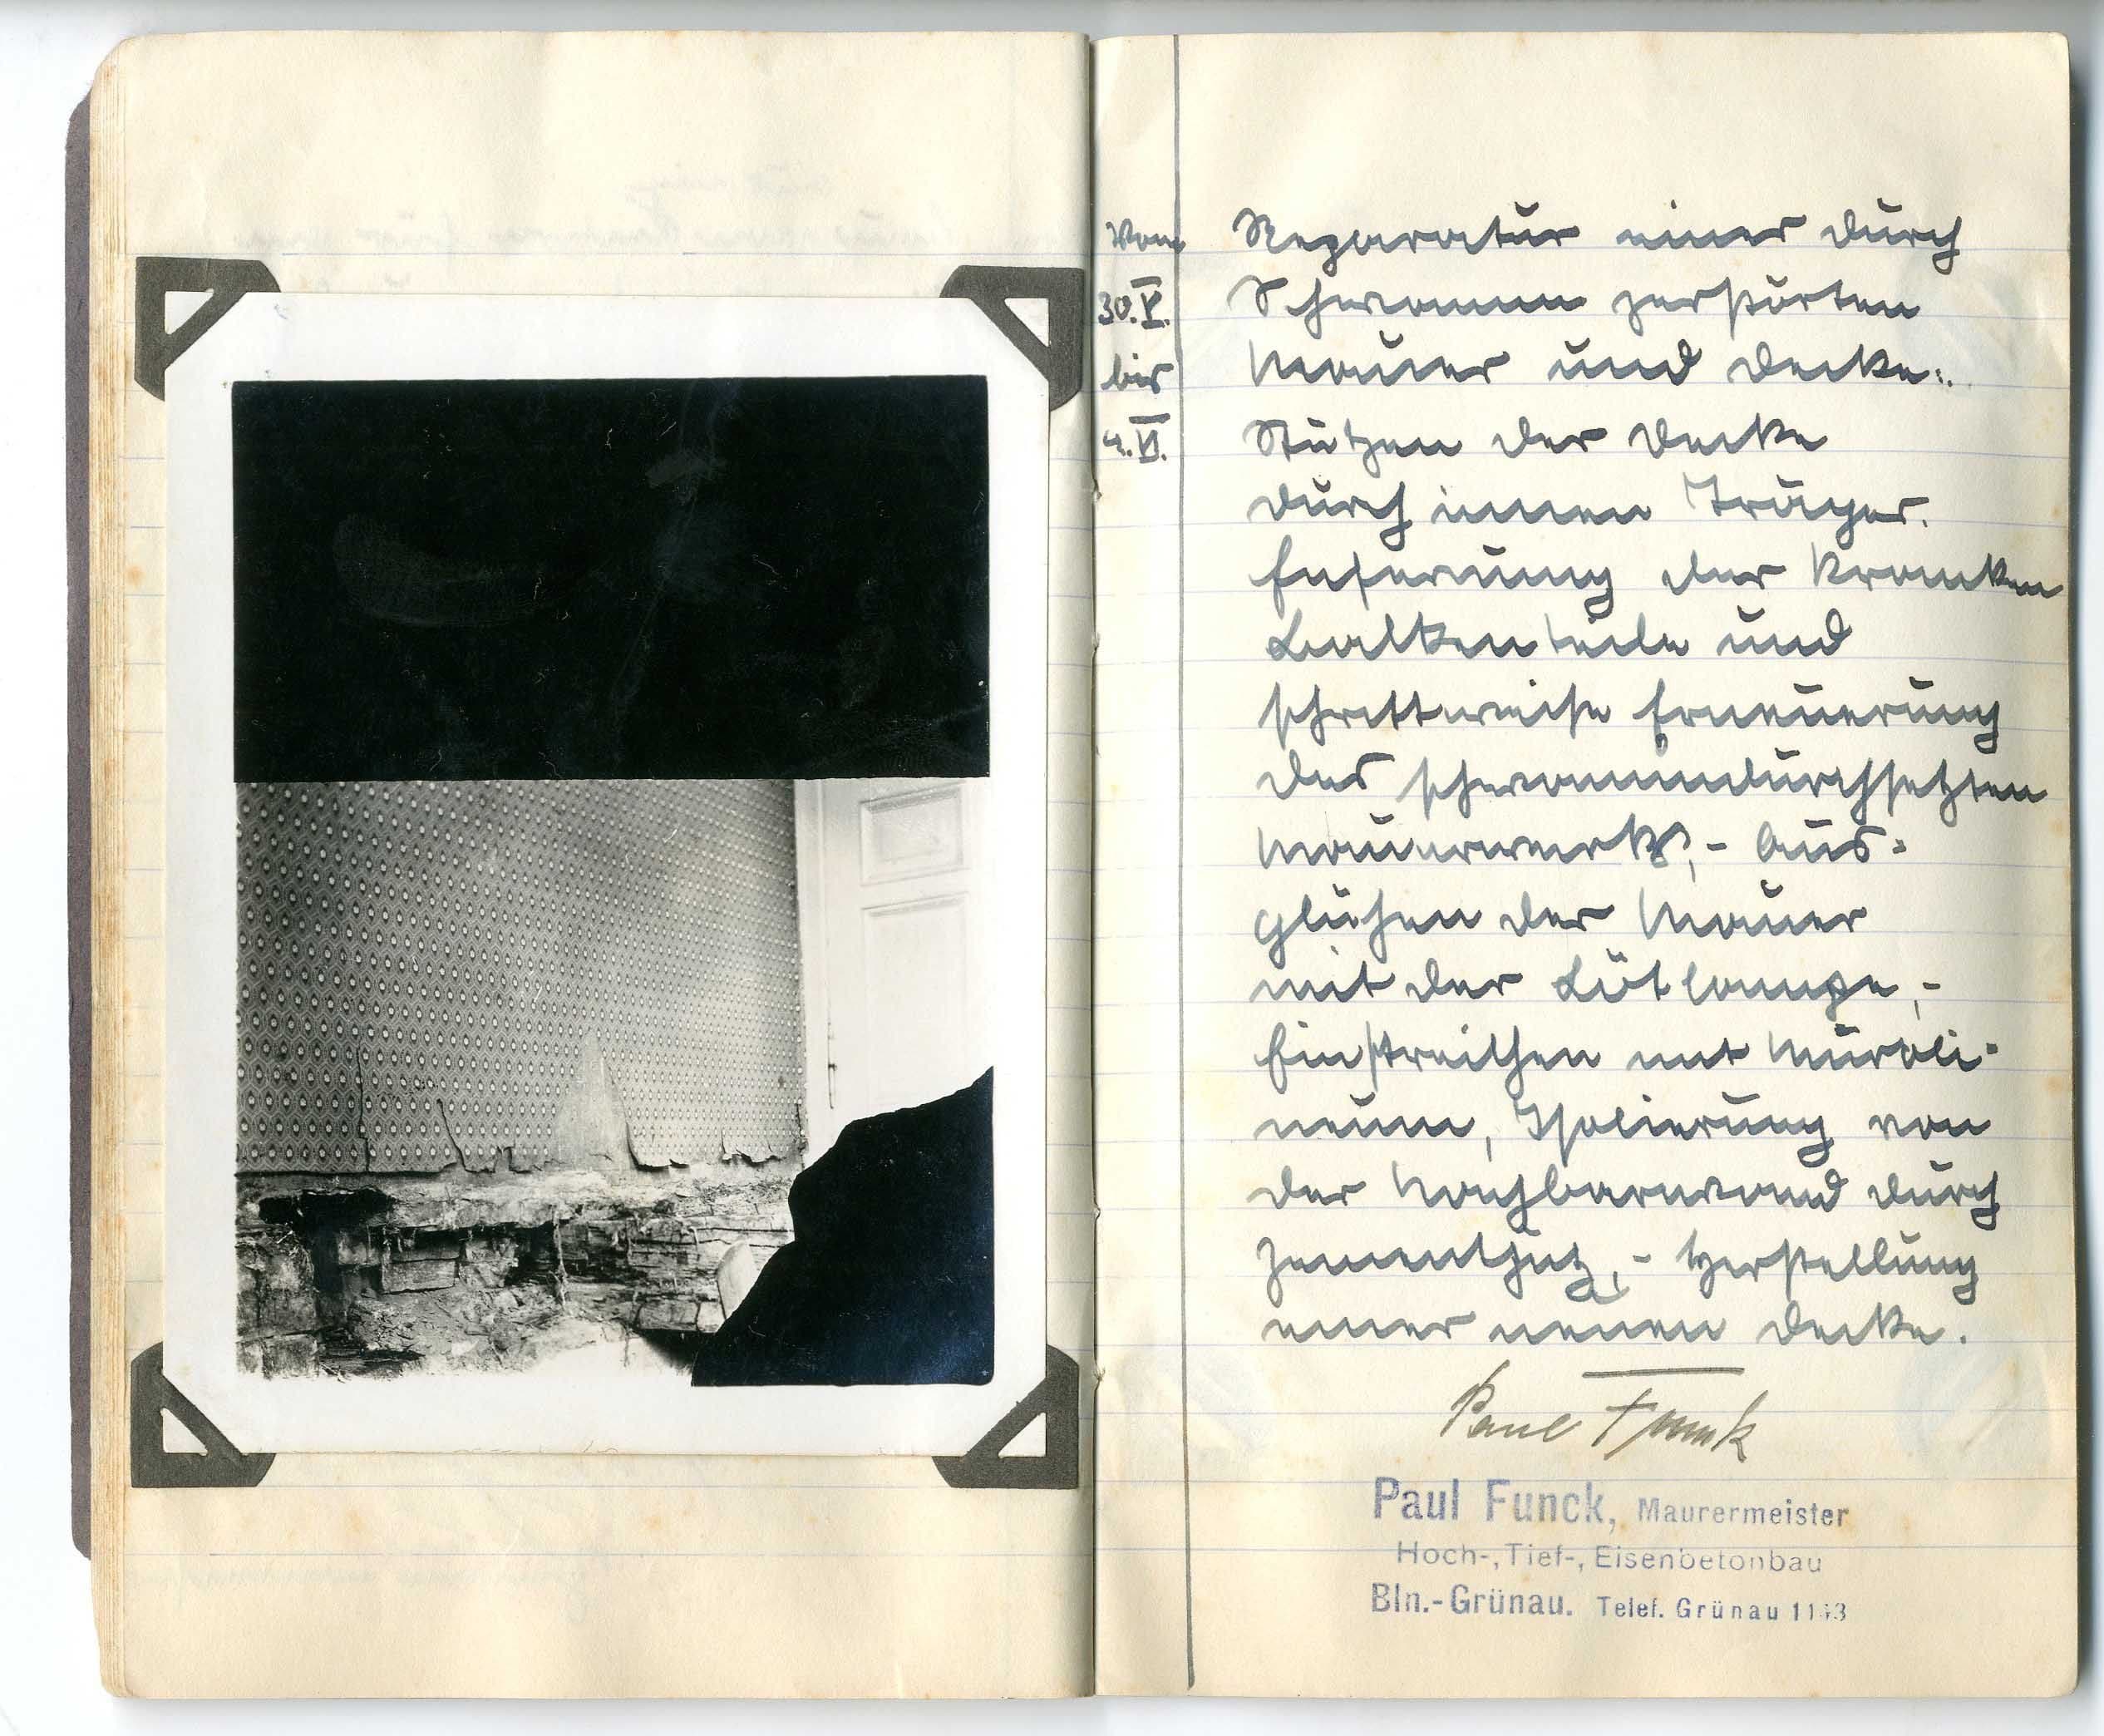 Vom
30.V.
bis
4.VI.
Reparatur einer durch
Schwamm zerstörten
Mauer und Decke:
Stützen der Decke
durch einen Träger.
Enfernung der kranken
Balkenteile und
schrittweise Erneuerung
des schwammdurchsetzten
Mauerwerks, - Aus-
glühen der Mauer
mit der Lötlampe, -
Einstreichen mit Muroli-
neum, Isolierung von
der Nachbarwand durch
Zementputz, - Herstellung
einer neuen Decke.
Paul Funck
Paul Funck, Maurermeister
Hoch-, Tief-, Eisenbetonbau
Bln.-Grünau. Telef. Grünau